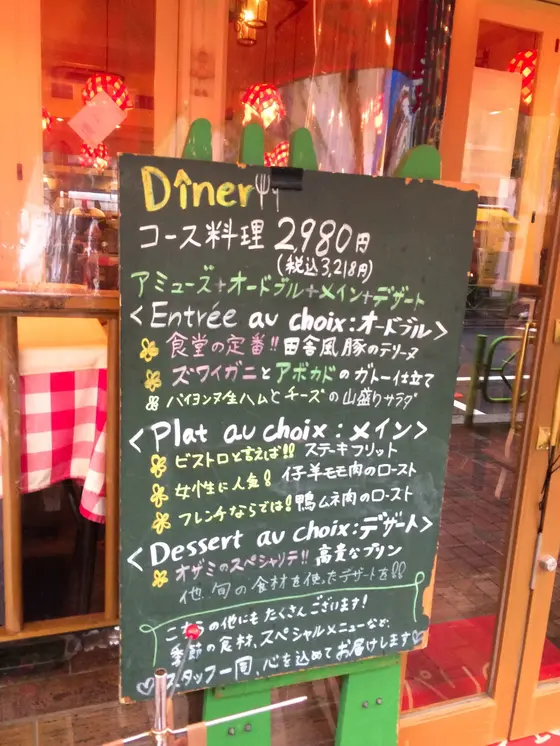 Dîner
コース料理 2,980円
(税込3,218円)
アミューズ+オードブル+メイン+デザート
<Entrée au choix:オードブル>
食堂の定番!! 田舎風豚のテリーヌ
ズワイガニとアボカドのガトー仕立て
バイヨンヌ生ハムとチーズの山盛りサラダ
<Plat au choix:メイン>
ビストロと言えば!! ステーキフリット
女性に人気! 仔羊モモ肉のロースト
フレンチならでは! 鴨ムネ肉のロースト
<Dessert au choix:デザート>
オザミのスペシャリテ!! 高貴なプリン
他、旬の食材を使ったデザートを!!
こちらの他にもたくさんございます!
季節の食材、スペシャルメニューなど、
スタッフ一同、心を込めてお届けします